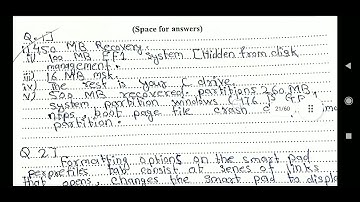 (Space for answers)
Q. 1]
i) 450 MB Recovery.
ii) 100 MB EFI system [Hidden from disk
management.
iii) 16 MB msr.
iv) the rest is your C drive.
v) 500 MB recovered. partitions 260 MB
system partition windows (176.) GB,
ntfs, boot page file crash
21/60
partition.
Q. 2]
Formatting options on the smart pad
tab consist at series of links
that opens, changes the smart pad to display